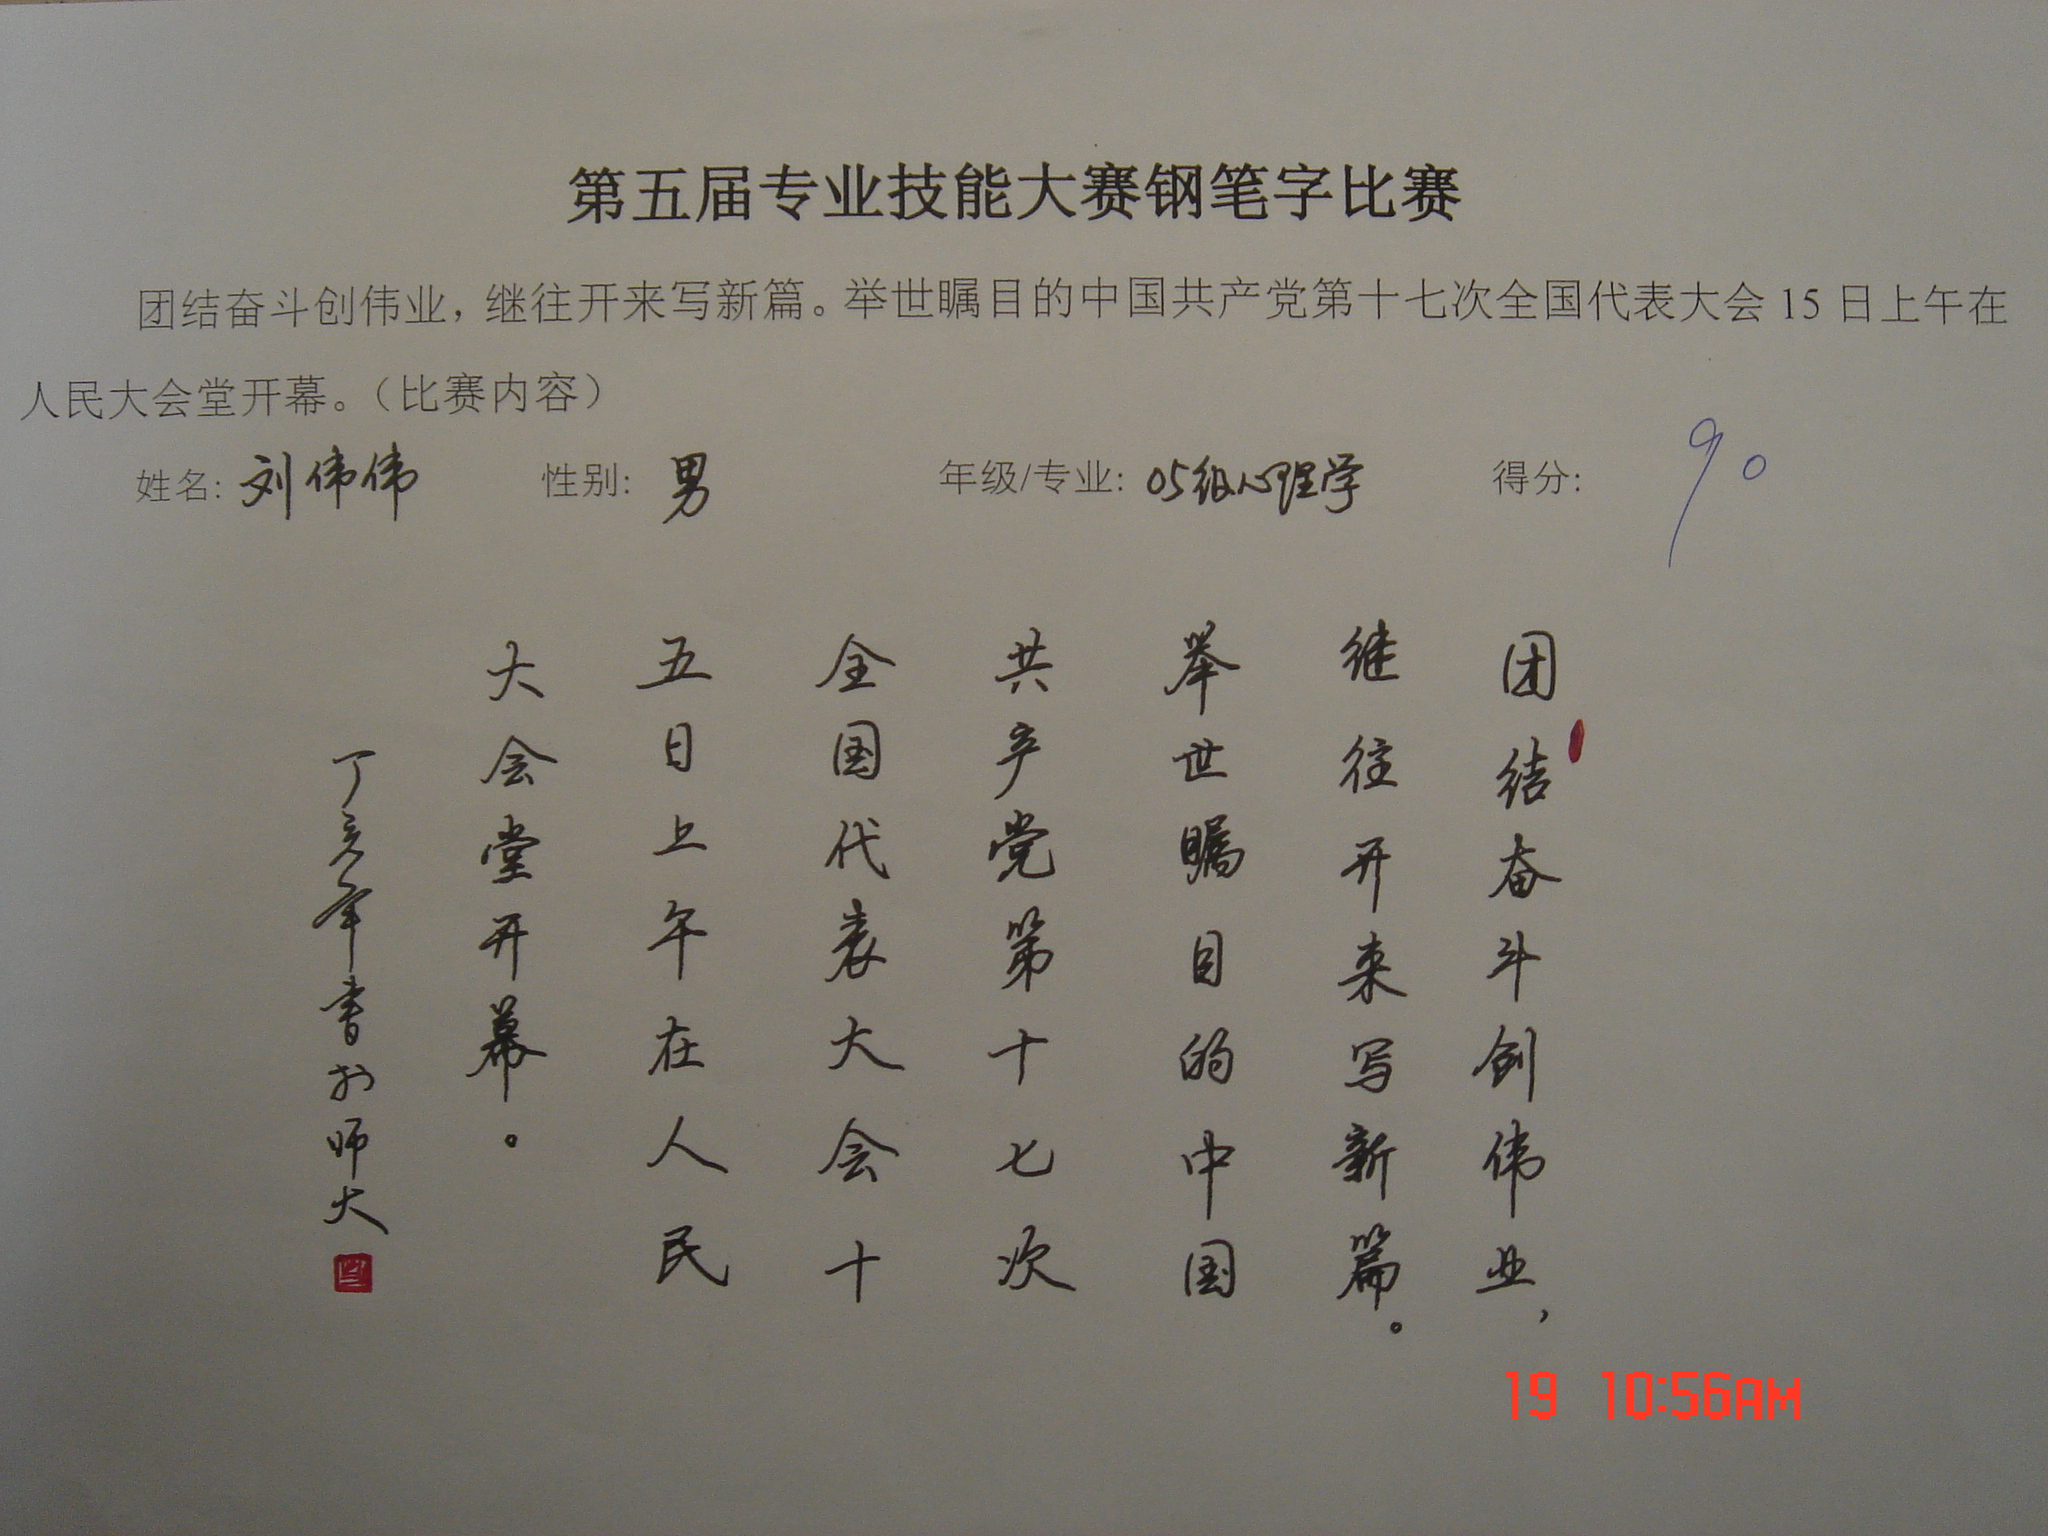 第五届专业技能大赛钢笔字比赛
团结奋斗创伟业，继往开来写新篇。举世瞩目的中国共产党第十七次全国代表大会 15 日上午在
人民大会堂开幕。（比赛内容）
姓名: 刘伟伟 性别: 男 年级/专业: 05级心理学 得分: 90
团结奋斗创伟业，
继往开来写新篇。
举世瞩目的中国
共产党第十七次
全国代表大会十
五日上午在人民
大会堂开幕。
丁亥年书於师大
19 10:56AM